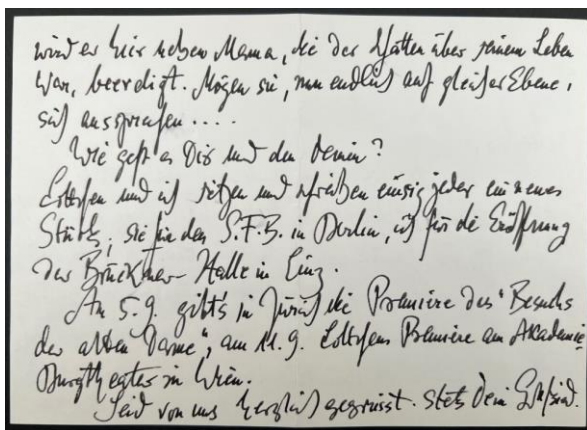 wird er hier neben Mama, die der Schatten über seinem Leben
war, beerdigt. Mögen sie, nun endlich auf gleicher Ebene,
sich aussprechen ....
Wie geht es Dir und den Deinen?
Lottchen und ich sitzen und schreiben emsig jeder ein neues
Stück, sie für den S.F.B. in Berlin, ich für die Eröffnung
der Bruckner-Halle in Linz.
Am 5.9. gibt's in Zürich die Premiere des "Besuchs
der alten Dame", am 11.9. Lottchens Premiere am Akademie
Burgtheater in Wien.
Seid von uns herzlich gegrüsst. Stets Dein Gottfried.